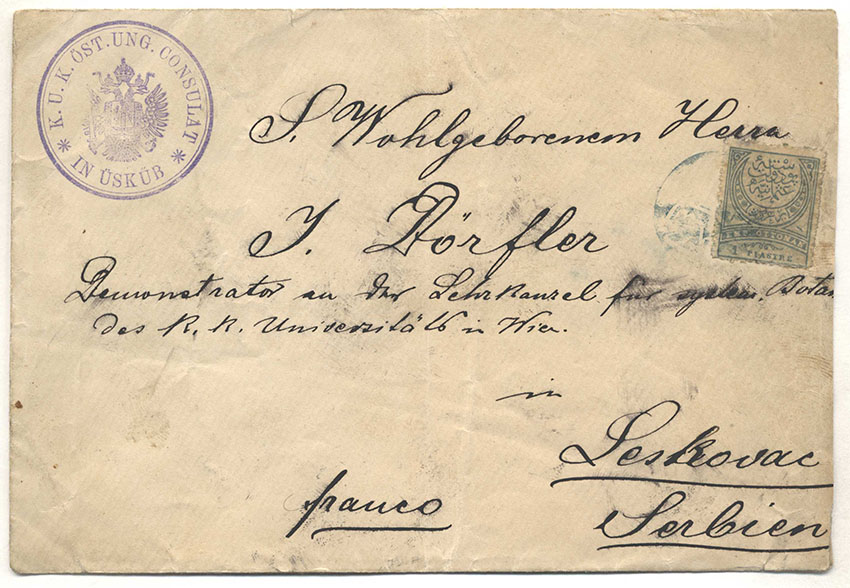 K. U. K. ÖST. UNG. CONSULAT
* IN ÜSKÜB *
S. Wohlgeborenem Herrn
I. Dörfler
Demonstrator an der Lehrkanzel für system. Bota
des k. k. Universitäts in Wien.
in
Leskovac
Serbien
franco
1 PIASTRE